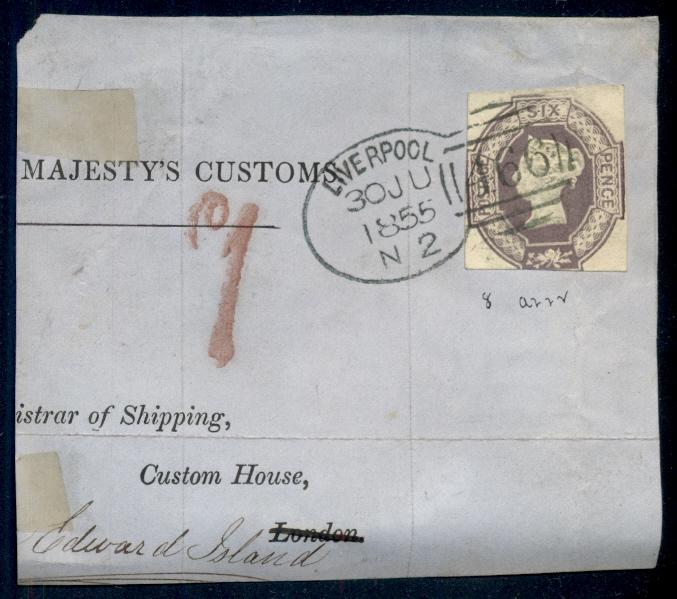 MAJESTY'S CUSTOMS
LIVERPOOL
30 JU
1855
N 2
466
SIX
PENCE
8
istrar of Shipping,
Custom House,
London.
Edward Island